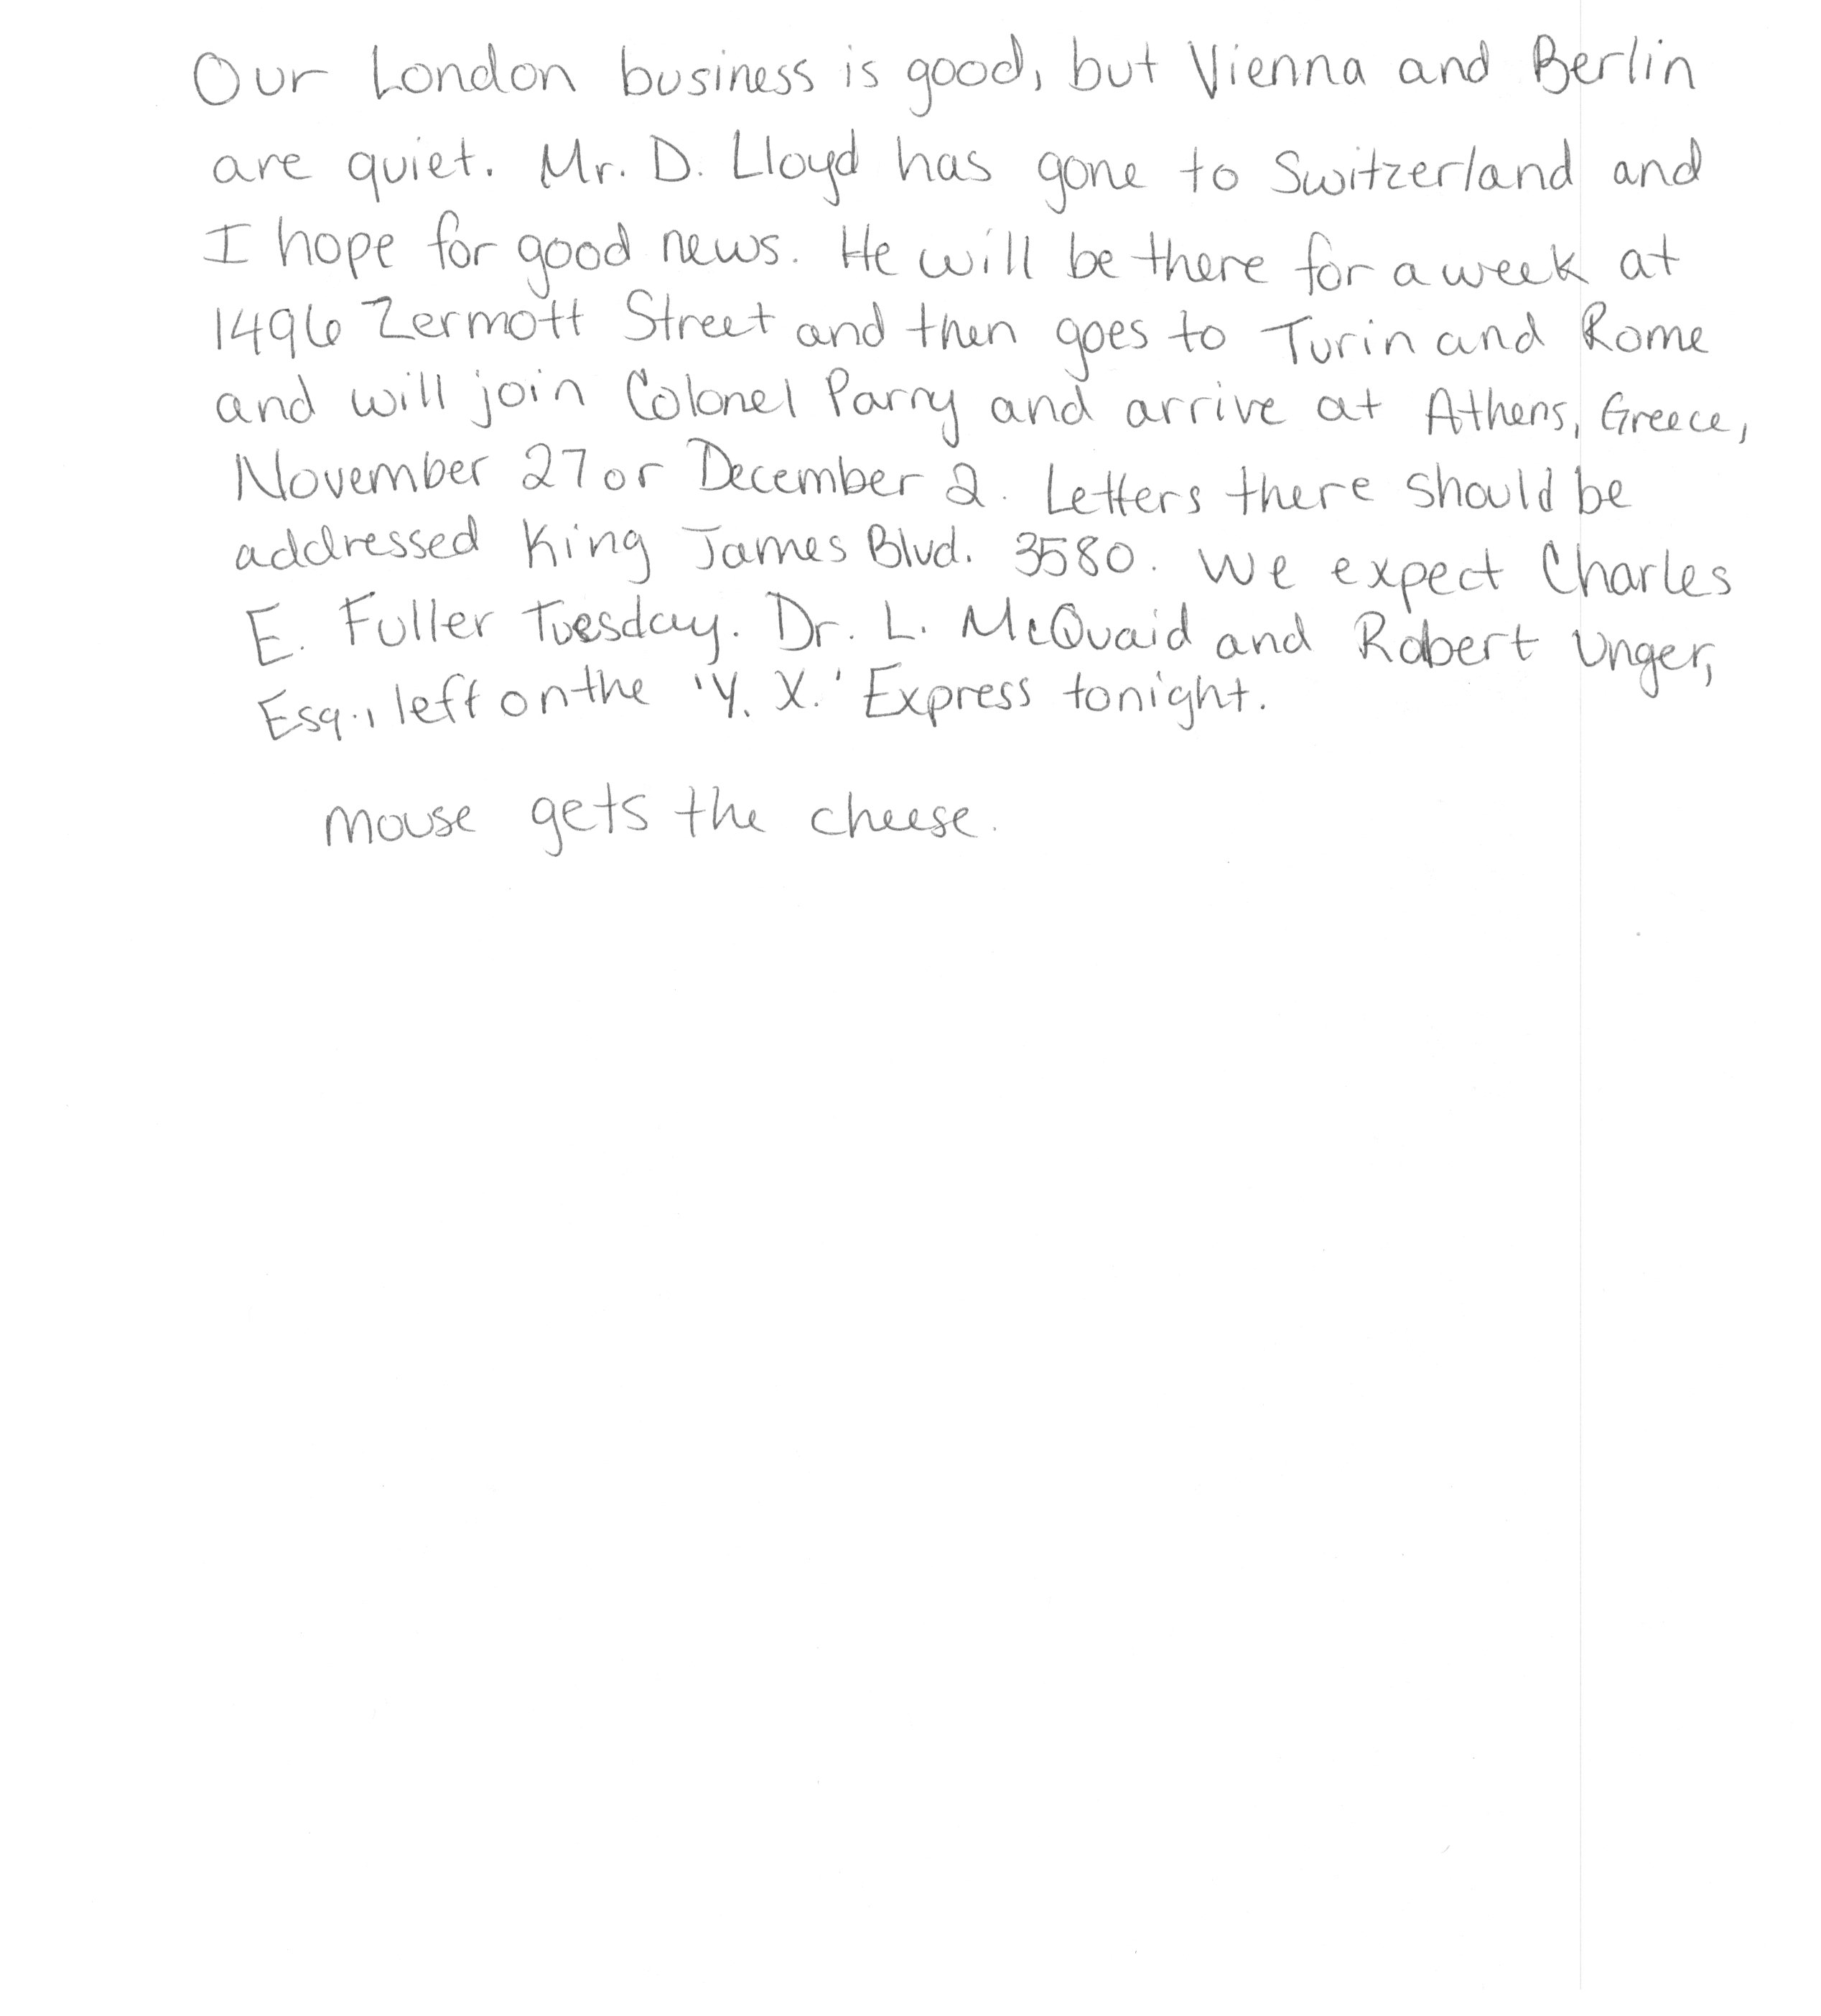 Our London business is good, but Vienna and Berlin
are quiet. Mr. D. Lloyd has gone to Switzerland and
I hope for good news. He will be there for a week at
1496 Zermott Street and then goes to Turin and Rome
and will join Colonel Parry and arrive at Athens, Greece,
November 27 or December 2. Letters there should be
addressed King James Blvd. 3580. We expect Charles
E. Fuller Tuesday. Dr. L. McQuaid and Robert Unger,
Esq., left on the 'Y. X.' Express tonight.
mouse gets the cheese.